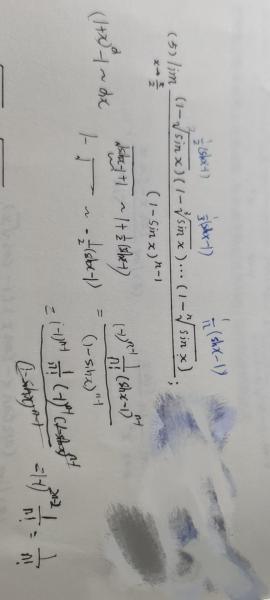 (5) lim x→π/2 (1-√sin x)(1-∛sin x)…(1-ⁿ√sin x) / (1-sin x)ⁿ⁻¹ ;
1/2(sinx-1) 1/3(sinx-1) 1/n(sinx-1)
(1+x)^α-1 ~ αx
√sinx-1+1 ~ 1+1/2(sinx-1)
1-√ ~ -1/2(sinx-1)
= (-1)ⁿ⁻¹ 1/n! (sinx-1)ⁿ⁻¹ / (1-sinx)ⁿ⁻¹
= (-1)ⁿ⁻¹ 1/n! (-1)ⁿ⁻¹
= (-1)²ⁿ⁻² 1/n! = 1/n!